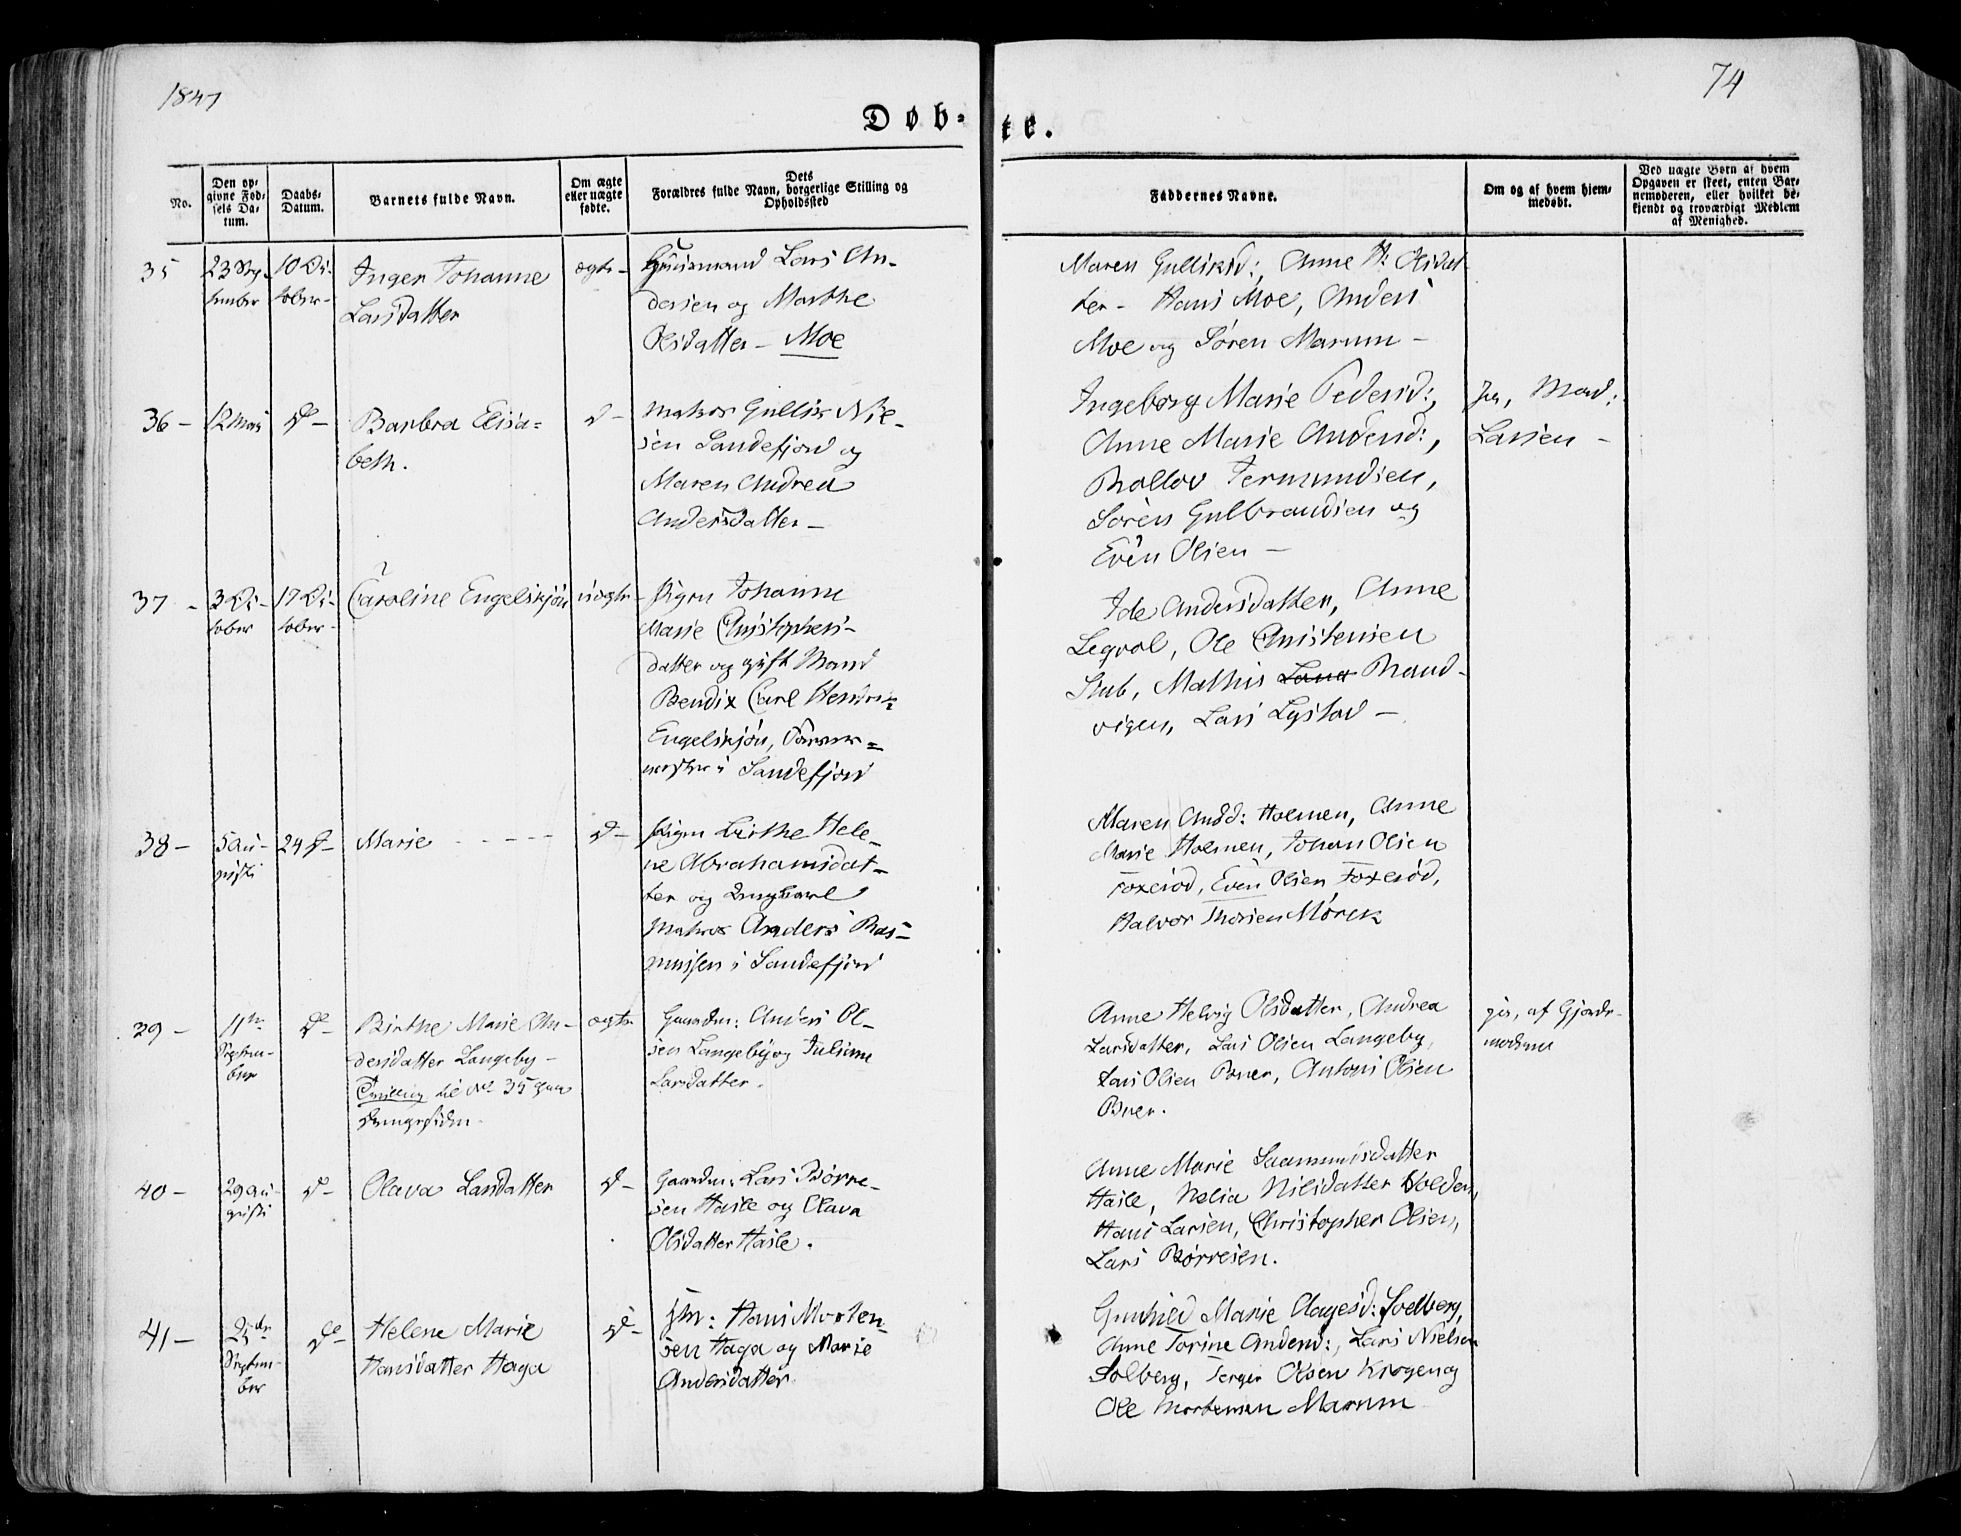 1847
74
Døb-
te.
No.
Den op-
givne Fød-
sels Da-
tum.
Daabs-
Datum.
Barnets fulde Navn.
Om ægte
eller uægte
fødte.
Dets
Forældres fulde Navn, borgerlige Stilling og
Opholdssted
Faddernes Navne.
Om og af hvem hjem-
medøbt.
Ved uægte Børn af hvem
Opgaven er skeet, enten Bar-
nemoderen, eller hvilket be-
kjendt og troværdigt Medlem
af Menighed.
35
23 Sep-
tember
10 Oc-
tober-
Inger Johanne
Larsdatter
ægte-
Huusmand Lars An-
dersen og Marthe
Olsdatter - Moe
Maren Gulliksd:, Anne H: Olsdat
ter - Hans Moe, Anders
Moe og Søren Marum -
36 -
12 Mai
Do -
Barbra Elisa=
beth.
Do -
Matros Gullik Niel-
sen Sandefjord og
Maren Andrea
Andersdatter -
Ingeborg Marie Pedersd:,
Anne Marie Andersd:,
Søren Gulbrandsen og
Even Olsen -
Larsen -
37 -
3 Oc-
tober
17 Oc-
tober-
Caroline Engelskjøn
uægte-
Pigen Johanne
Marie Christophers-
datter og gift Mand
Bendix Carl Hendrik
Engelskjøn, Farver=
mester i Sandefjord
Ide Andersdatter, Anne
Legvol, Ole Christensen
Stub, Mathis Brand-
vigen, Lars Lystad -
38 -
5 Au-
gusti
24 Do-
Marie - - - -
Do -
Pigen Birthe Hele-
ne Abrahamsdat-
ter og Ungkarl
Matros Anders Ras-
mussen i Sandefjord
Maren Andd: Holmen, Anne
Marie Holmen, Johan Olsen
Foxerød, Even Olsen Foxerød,
Halvor Thorsen Mørck
39 -
11te
Septem-
ber
Do -
Birthe Marie An-
dersdatter Langeby -
Tvilling til No 35 paa
ægte
Gaardm: Anders Ol-
sen Langeby og Juliane
Larsdatter.
Anne Helvig Olsdatter, Andrea
Larsdatter, Lars Olsen Langeby,
Lars Olsen Buer, Anton Olsen
Buer.
ja, af Gjorde-
moderen
40 -
29 Au-
gusti
Do -
Olava Larsdatter
Do -
Gaardm: Lars Børre-
sen Hasle og Olava
Olsdatter Hasle.
Anne Marie Rasmusdatter
Hasle, Nilsdatter
Hans Larsen, Christopher Olsen,
Lars Børresen.
41 -
Septem-
ber
Do -
Helene Marie
Hansdatter Haga
Do -
Hm: Hans Morten-
sen Haga og Marie
Andersdatter
Gunhild Marie Aagesd: Soelberg,
Anne Torine Andersd:, Lars Nielsen
Solberg, Torger Olsen Krogen og
Ole Mortensen Marum